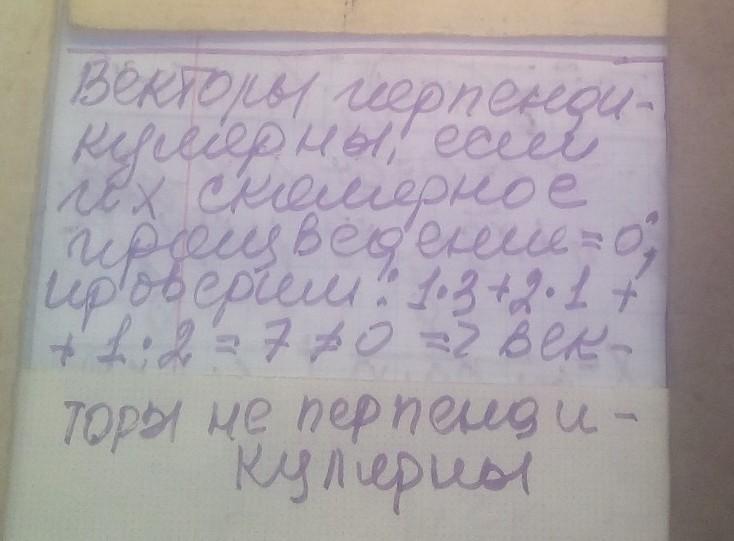 Векторы перпенди-
кулярны, если
их скалярное
произведение = 0;
проверим: 1·3+2·1 +
+ 1·2 = 7 ≠ 0 => век-
торы не перпенди-
кулярны